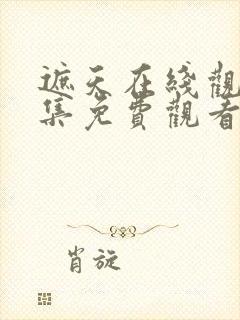 遮天在綫觀
集免費觀看
肖旋